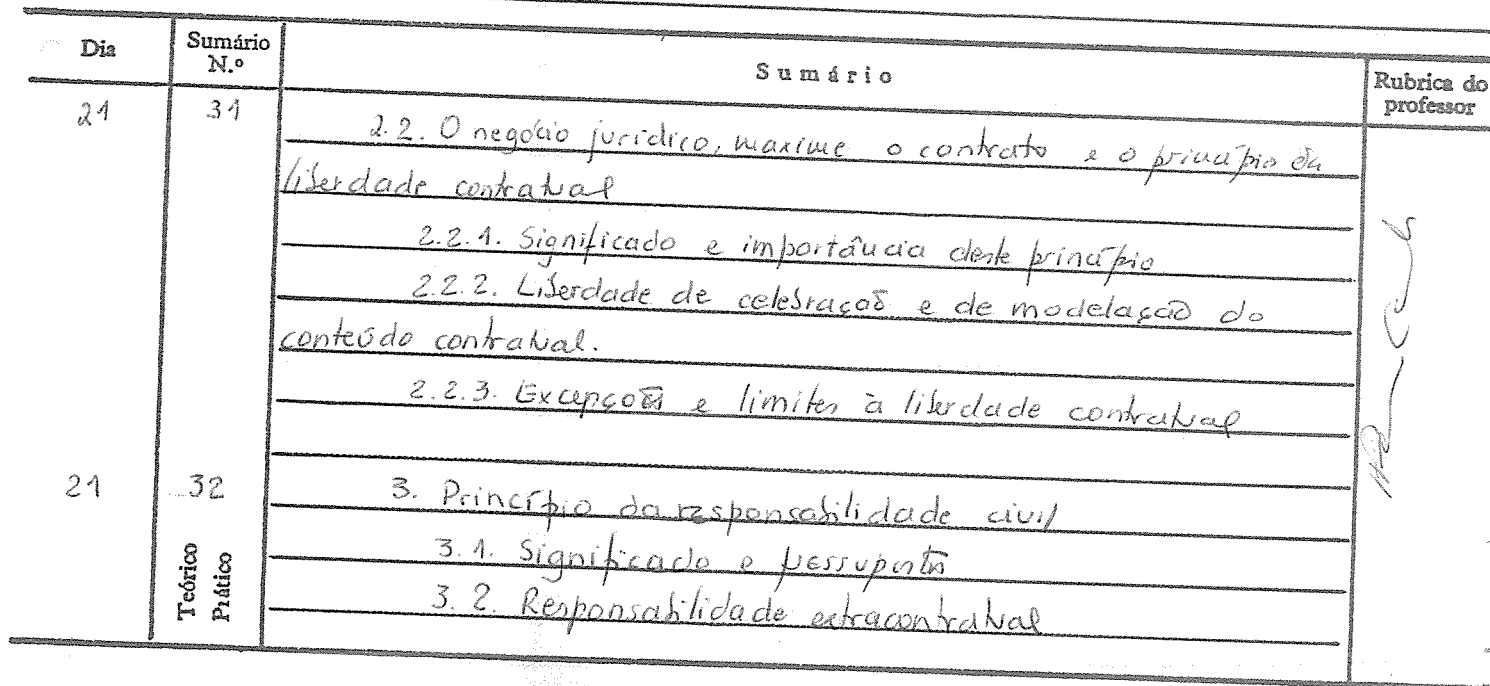 Dia Sumário N.º Sumário Rubrica do professor
21 31 2.2. O negócio jurídico, maxime o contrato e o princípio da
liberdade contratual
2.2.1. Significado e importância deste princípio
2.2.2. Liberdade de celebração e de modelação do
conteúdo contratual.
2.2.3. Excepções e limites à liberdade contratual
21 32 3. Princípio da responsabilidade civil
3.1. Significado e pressupostos
3.2. Responsabilidade extracontratual
Teórico
Prático